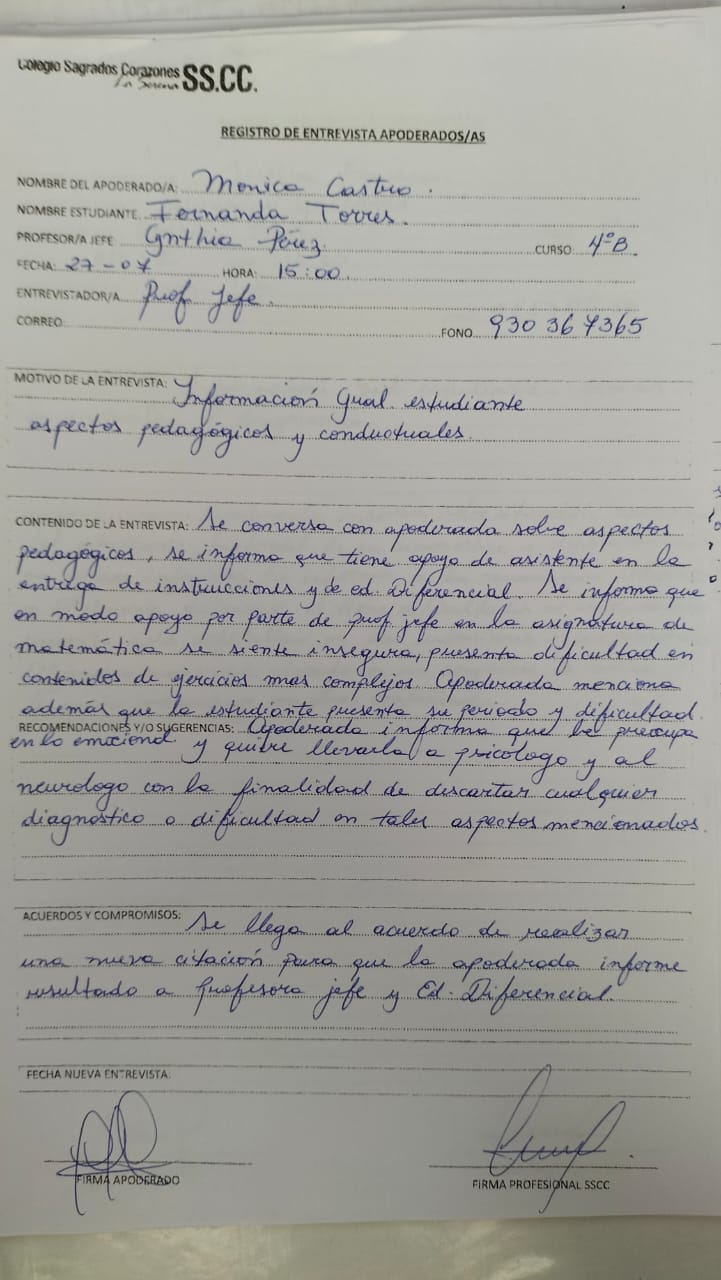 Colegio Sagrados Corazones SS.CC.
La Serena
REGISTRO DE ENTREVISTA APODERADOS/AS
NOMBRE DEL APODERADO/A: Monica Castro.
NOMBRE ESTUDIANTE: Fernanda Torres.
PROFESOR/A JEFE: Cynthia Pérez. CURSO: 4°B.
FECHA: 27-07 HORA: 15:00
ENTREVISTADOR/A: Prof Jefe.
CORREO: FONO 930 367365
MOTIVO DE LA ENTREVISTA: Información Gral estudiante
aspectos pedagógicos y conductuales.
CONTENIDO DE LA ENTREVISTA: Se conversa con apoderada sobre aspectos
pedagógicos, se informa que tiene apoyo de asistente en la
entrega de instrucciones y de ed. Diferencial. Se informa que
en modo apoyo por parte de prof. jefe en la asignatura de
matemática se siente insegura, presenta dificultad en
contenidos de ejercicios mas complejos. Apoderada menciona
además que la estudiante presenta su periodo y dificultad.
RECOMENDACIONES Y/O SUGERENCIAS: Apoderada informa que le preocupa
en lo emocional y quiere llevarla a psicólogo y al
neurologo con la finalidad de descartar cualquier
diagnóstico o dificultad en tales aspectos mencionados.
ACUERDOS Y COMPROMISOS: Se llega al acuerdo de realizar
una nueva citación para que la apoderada informe
resultado a Profesora jefe y Ed. Diferencial.
FECHA NUEVA ENTREVISTA:
FIRMA APODERADO FIRMA PROFESIONAL SSCC